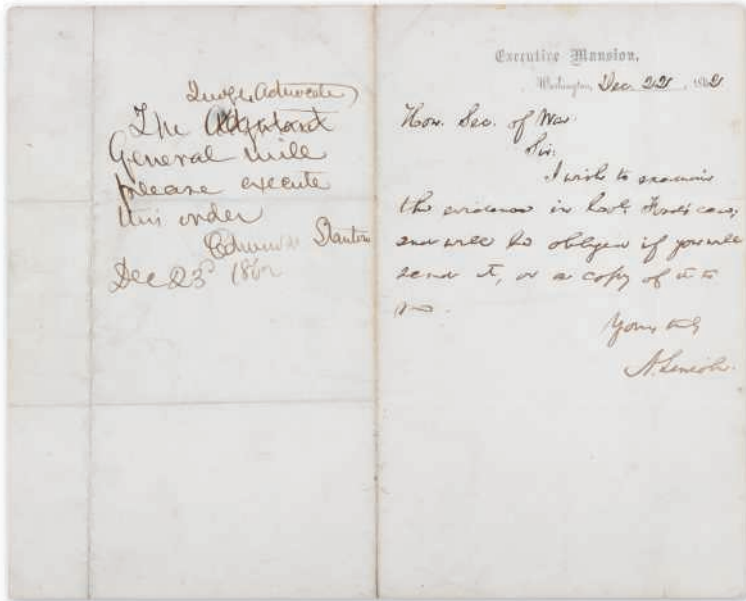 Judge Advocate
The Adjutant
General will
please execute
this order
Edwin M Stanton
Dec 23d 1862
Executive Mansion,
Washington, Dec. 22, 1862
Hon. Sec. of War.
Sir:
I wish to examine
the evidence in Col. case;
and will be obliged if you will
send it, or a copy of it to
me.
Yours truly
A. Lincoln.